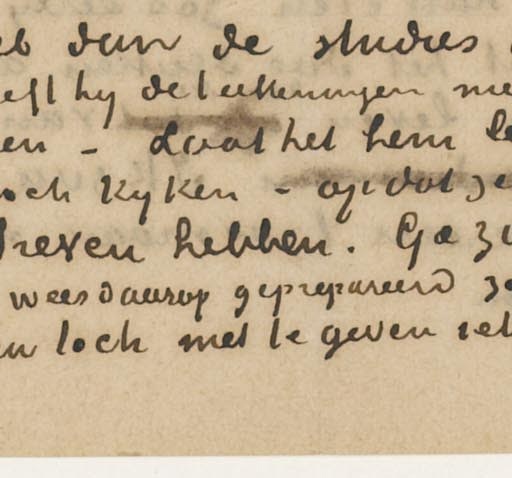 eb dan de studies
eeft hy de teekeningen me
en - Laat het hem le
och kyken - opdat ze
dreven hebben. Ge zu
wees daarop geprepareerd ze
en toch met te geven iet